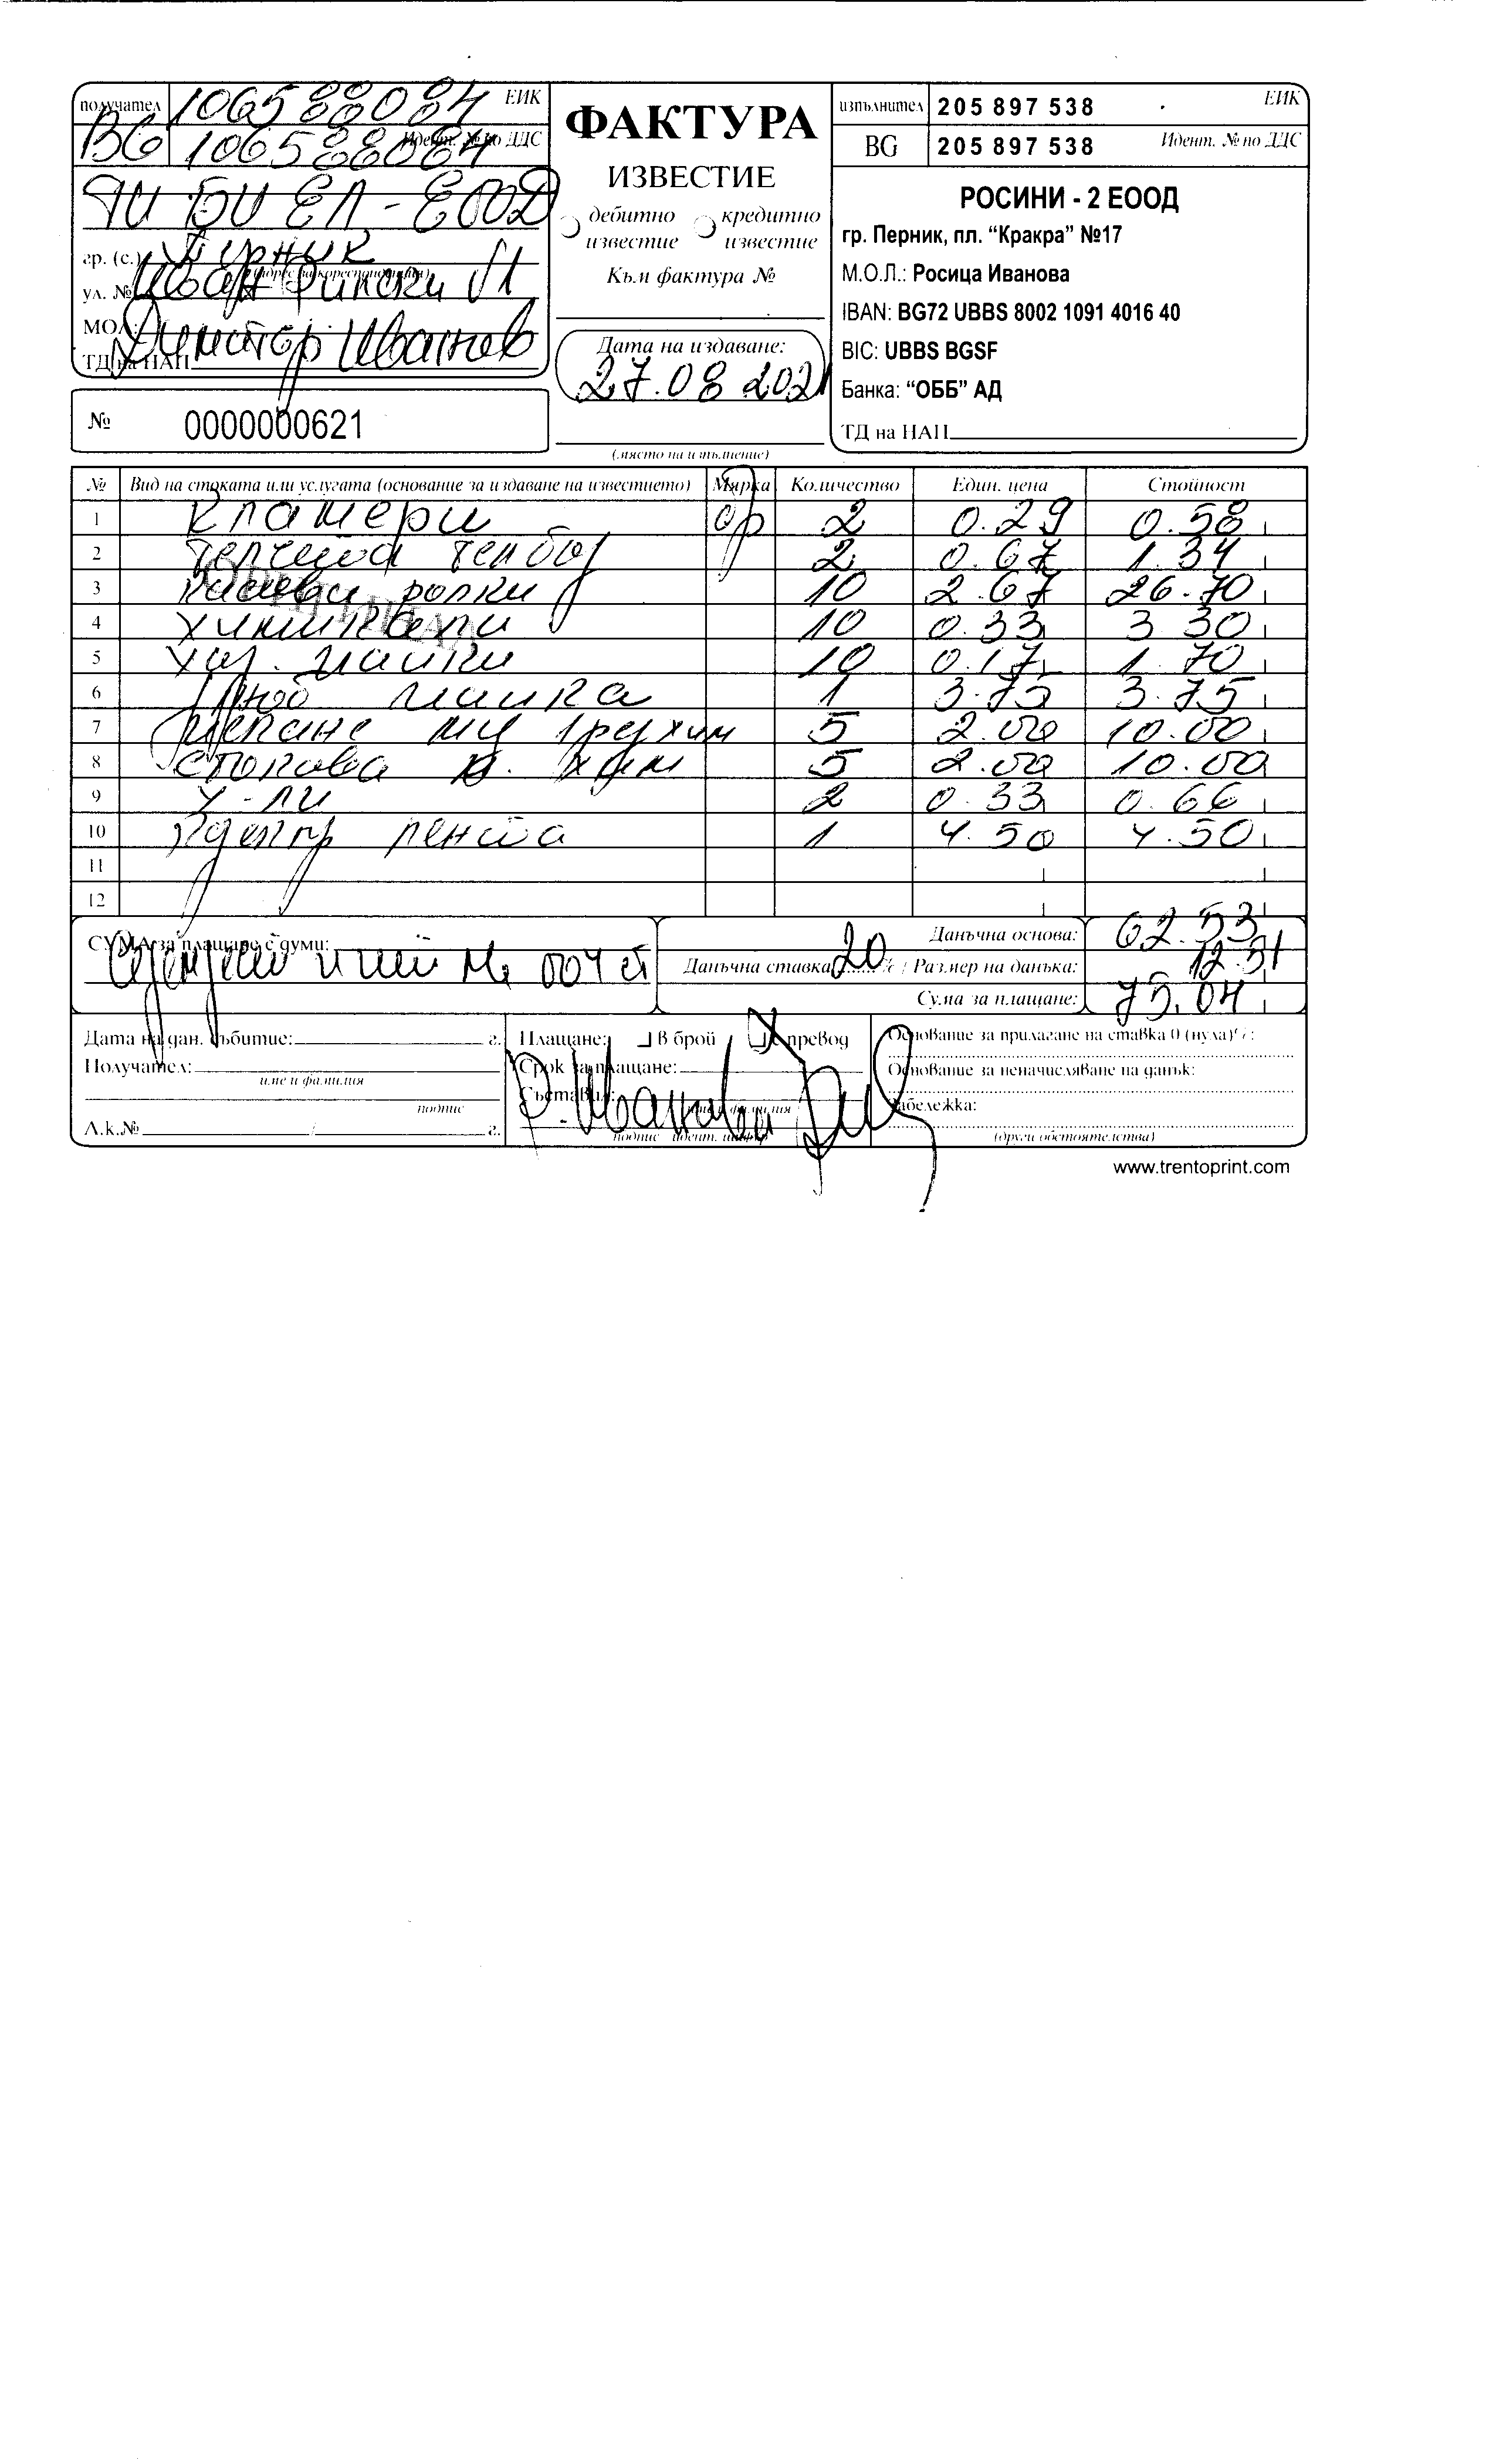 получател 106588084 ЕИК
BG 106588084 Идент. № по ДДС
ЯЙ БИ ЕЛ - ЕООД
гр. (с.) Перник
(адрес за кореспонденция)
ул. № Иван Рилски
МОЛ: Димитър Иванов
ТД на НАП
№ 0000000621
ФАКТУРА
ИЗВЕСТИЕ
дебитно известие кредитно известие
Към фактура №
Дата на издаване:
27.08.2021
(място на изпълнение)
изпълнител 205 897 538 ЕИК
BG 205 897 538 Идент. № по ДДС
РОСИНИ - 2 ЕООД
гр. Перник, пл. “Кракра” №17
М.О.Л.: Росица Иванова
IBAN: BG72 UBBS 8002 1091 4016 40
BIC: UBBS BGSF
Банка: “ОББ” АД
ТД на НАП
№ Вид на стоката или услугата (основание за издаване на известието) Мярка Количество Един. цена Стойност
1 Кламери бр 2 0.29 0.58
2 телчета телбод 2 0.67 1.34
3 касеви ролки 10 2.67 26.70
4 химикали 10 0.33 3 30
5 хар. папки 10 0.17 1.70
6 папка 1 3.75 3.75
7 5 2.00 10.00
8 5 2.00 10.00
9 У-ли 2 0.33 0.66
10 лента 1 4.50 4.50
11
12
СУМА за плащане с думи:
седемдесет и пет лв 004 ст
Данъчна основа: 62.53
Данъчна ставка 20 % / Размер на данъка: 12.51
Сума за плащане: 75.04
Дата на дан. събитие: г.
Получател:
име и фамилия
подпис
Л.к.№ / г.
Плащане: в брой превод
Срок за плащане:
Съставил: Р. Иванова
име и фамилия
подпис идент. шифър
Основание за прилагане на ставка 0 (нула)%:
Основание за неначисляване на данък:
Забележка:
(други обстоятелства)
www.trentoprint.com